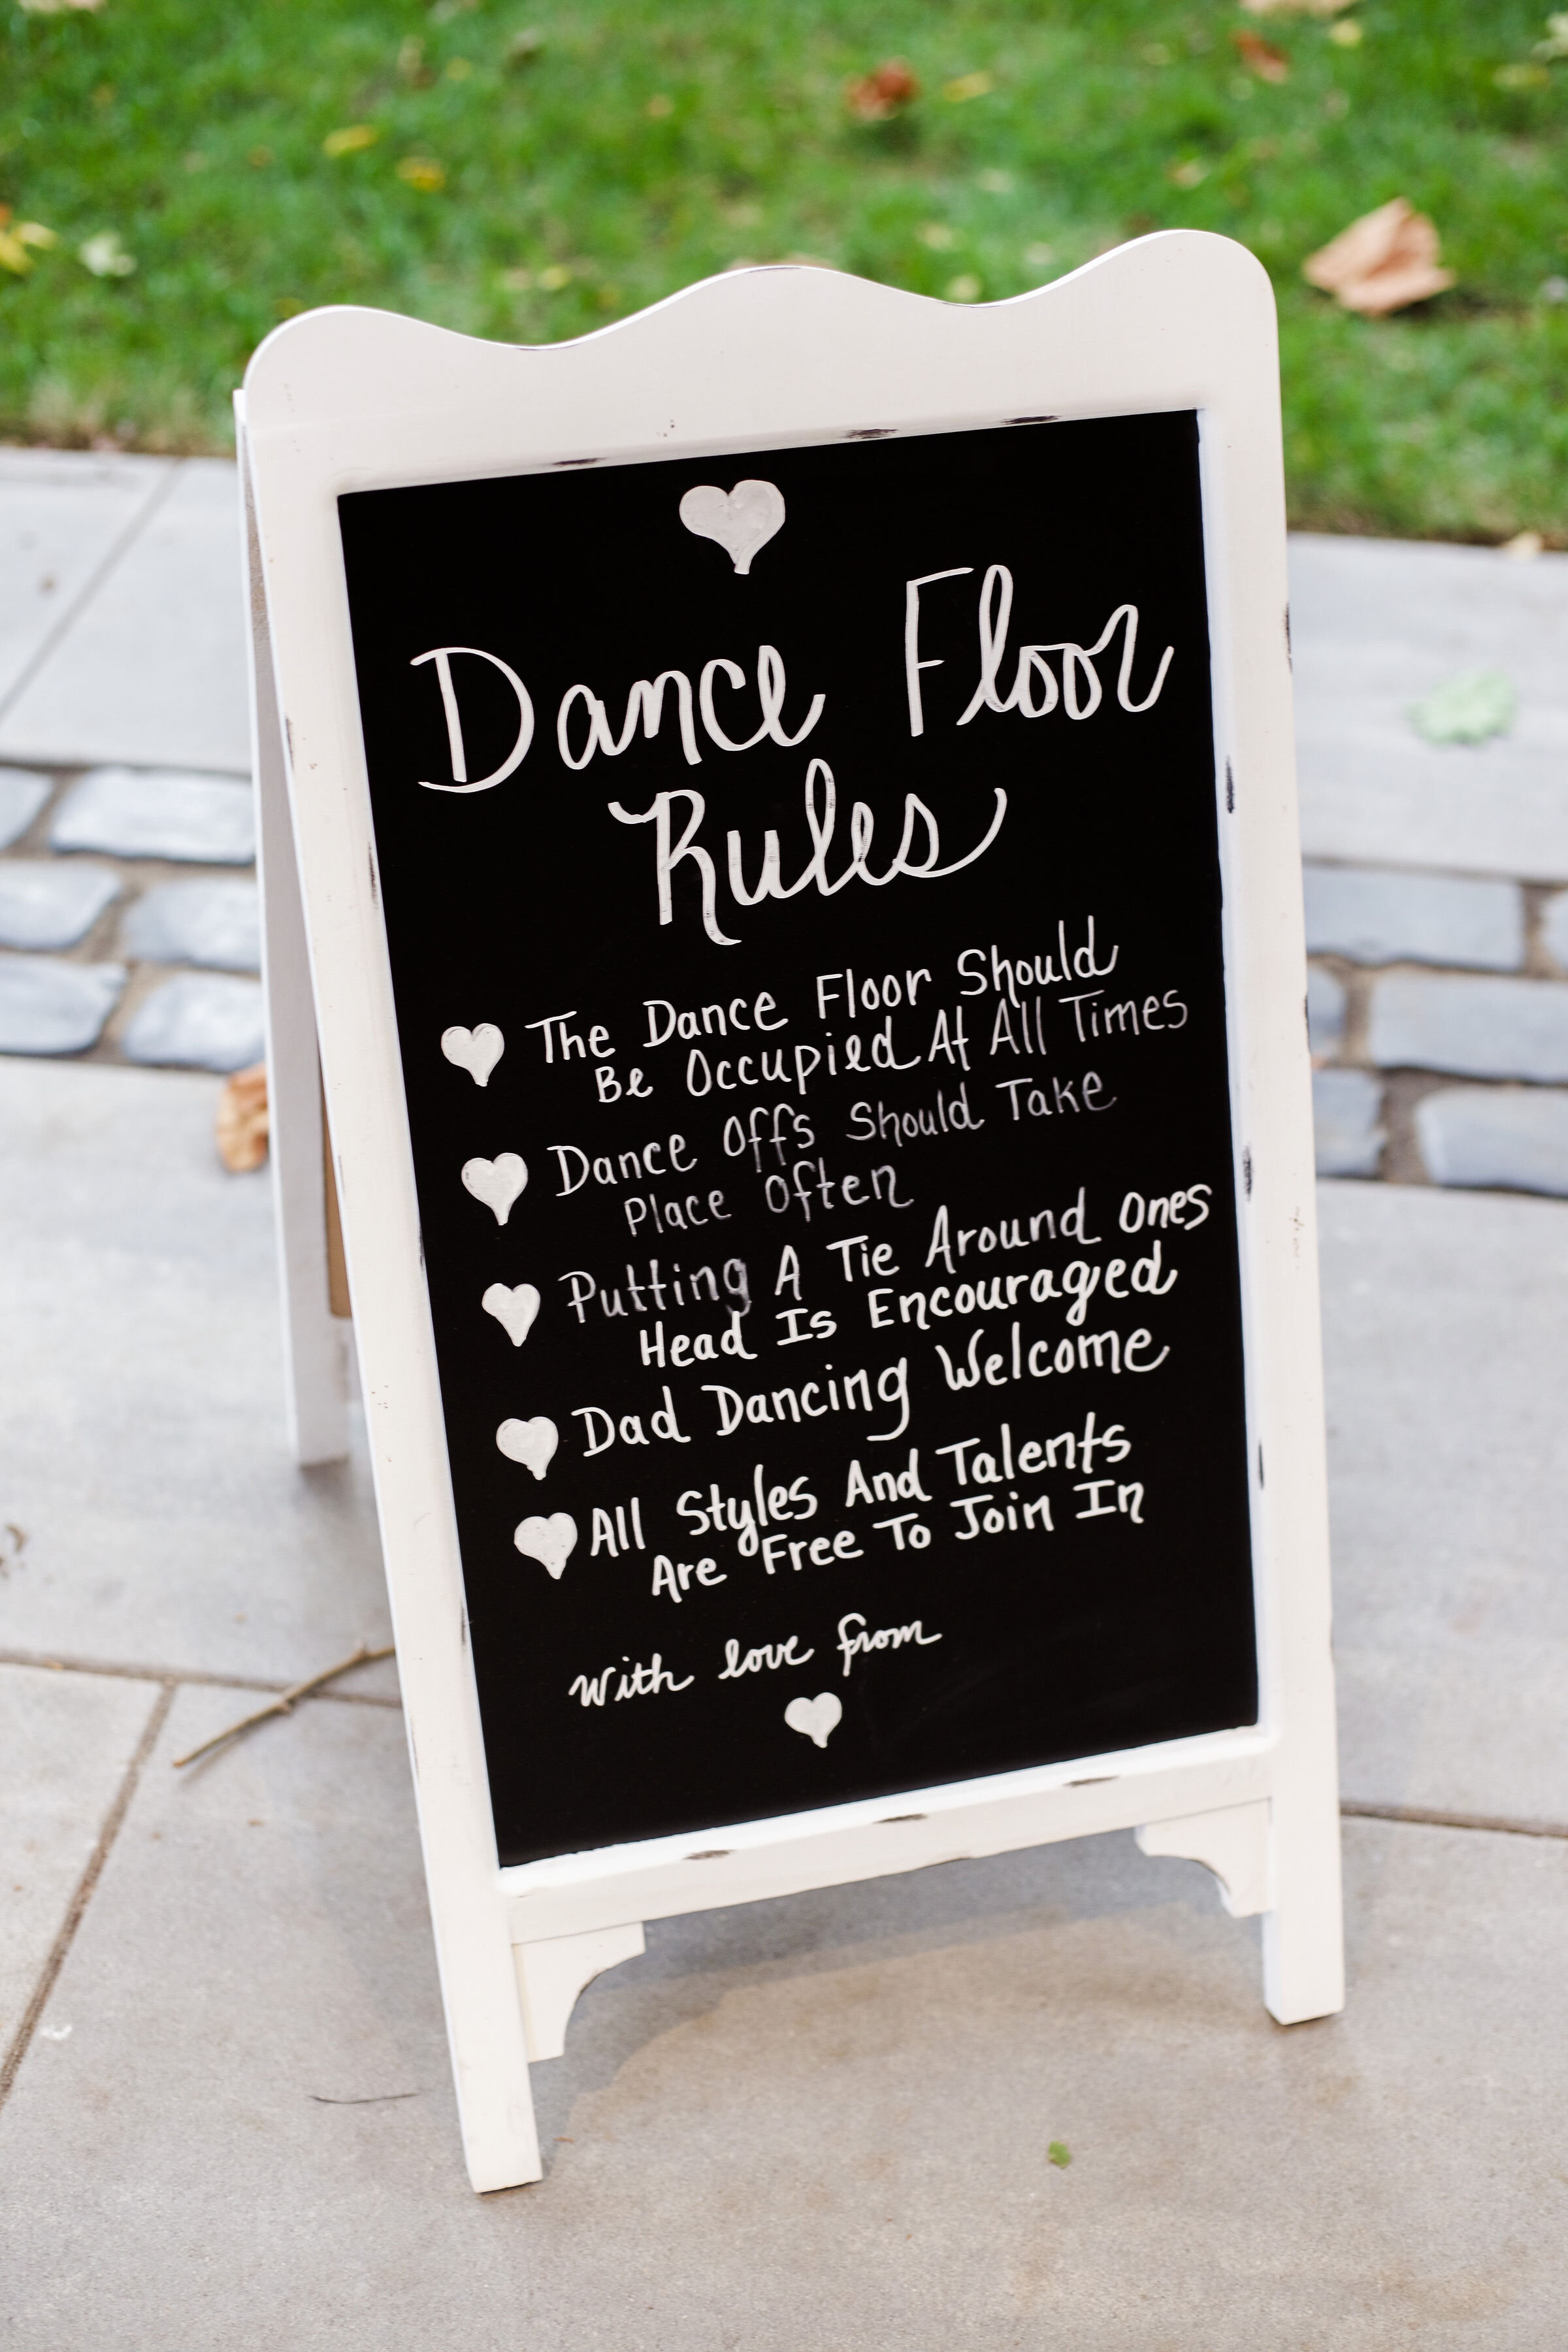 Dance Floor
Rules
The Dance Floor Should
Be Occupied At All Times
Dance Offs Should Take
Place Often
Putting A Tie Around Ones
Head Is Encouraged
Dad Dancing Welcome
All Styles And Talents
Are Free To Join In
With love from